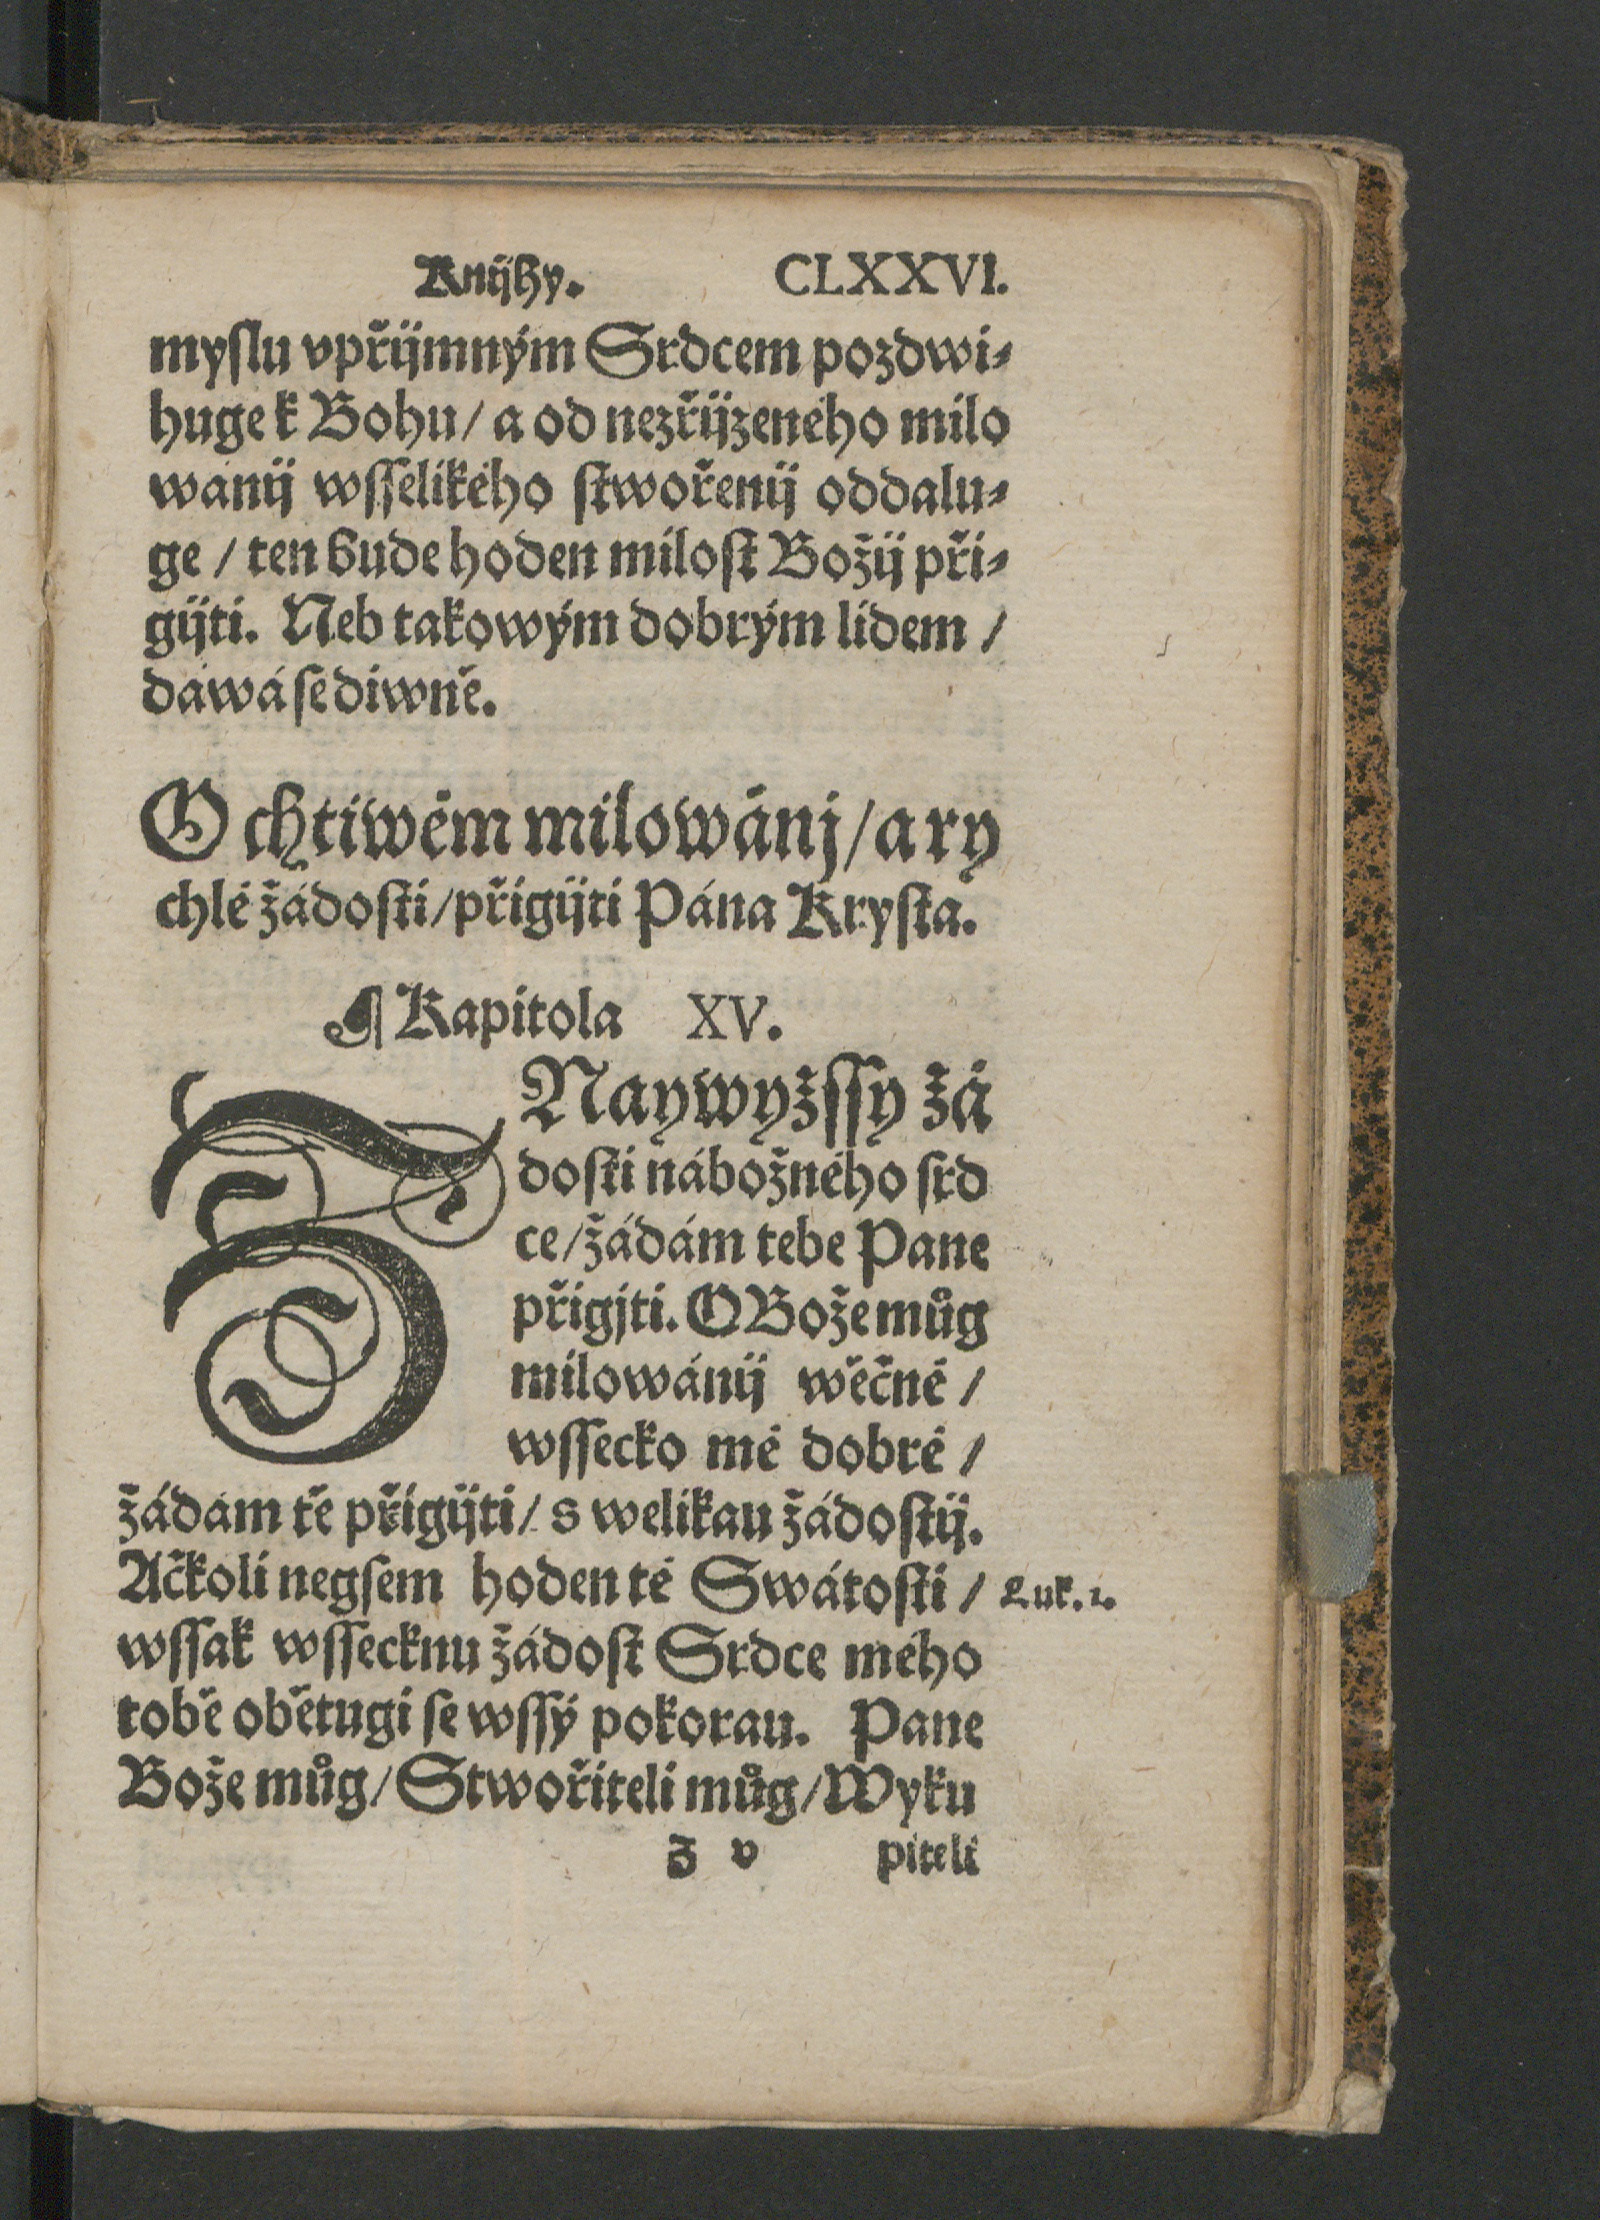 Knijhy. CLXXVI.
myslu vpřijmným Srdcem pozdwi⸗
huge k Bohu / a od nezřijzeného milo
wánij wsselikého stwořenij oddalu⸗
ge / ten bude hoden milost Božij při⸗
gijti. Neb takowým dobrým lidem /
dáwá se diwně.
O chtiwém milowánj / a ry
chlé žádosti / přigijti Pána Krysta.
¶ Kapitola XV.
Z Naywyžssy žá
dosti nábožného srd
ce / žádám tebe Pane
přigjti. O Bože můg
milowánij wěčné /
wssecko mé dobré /
žádám tě přigijti / s welikau žádostij.
Ačkoli negsem hoden té Swátosti / Luk. 1.
wssak wssecknu žádost Srdce mého
tobě obětugi se wssý pokorau. Pane
Bože můg / Stwořiteli můg / Wyku
Z v piteli